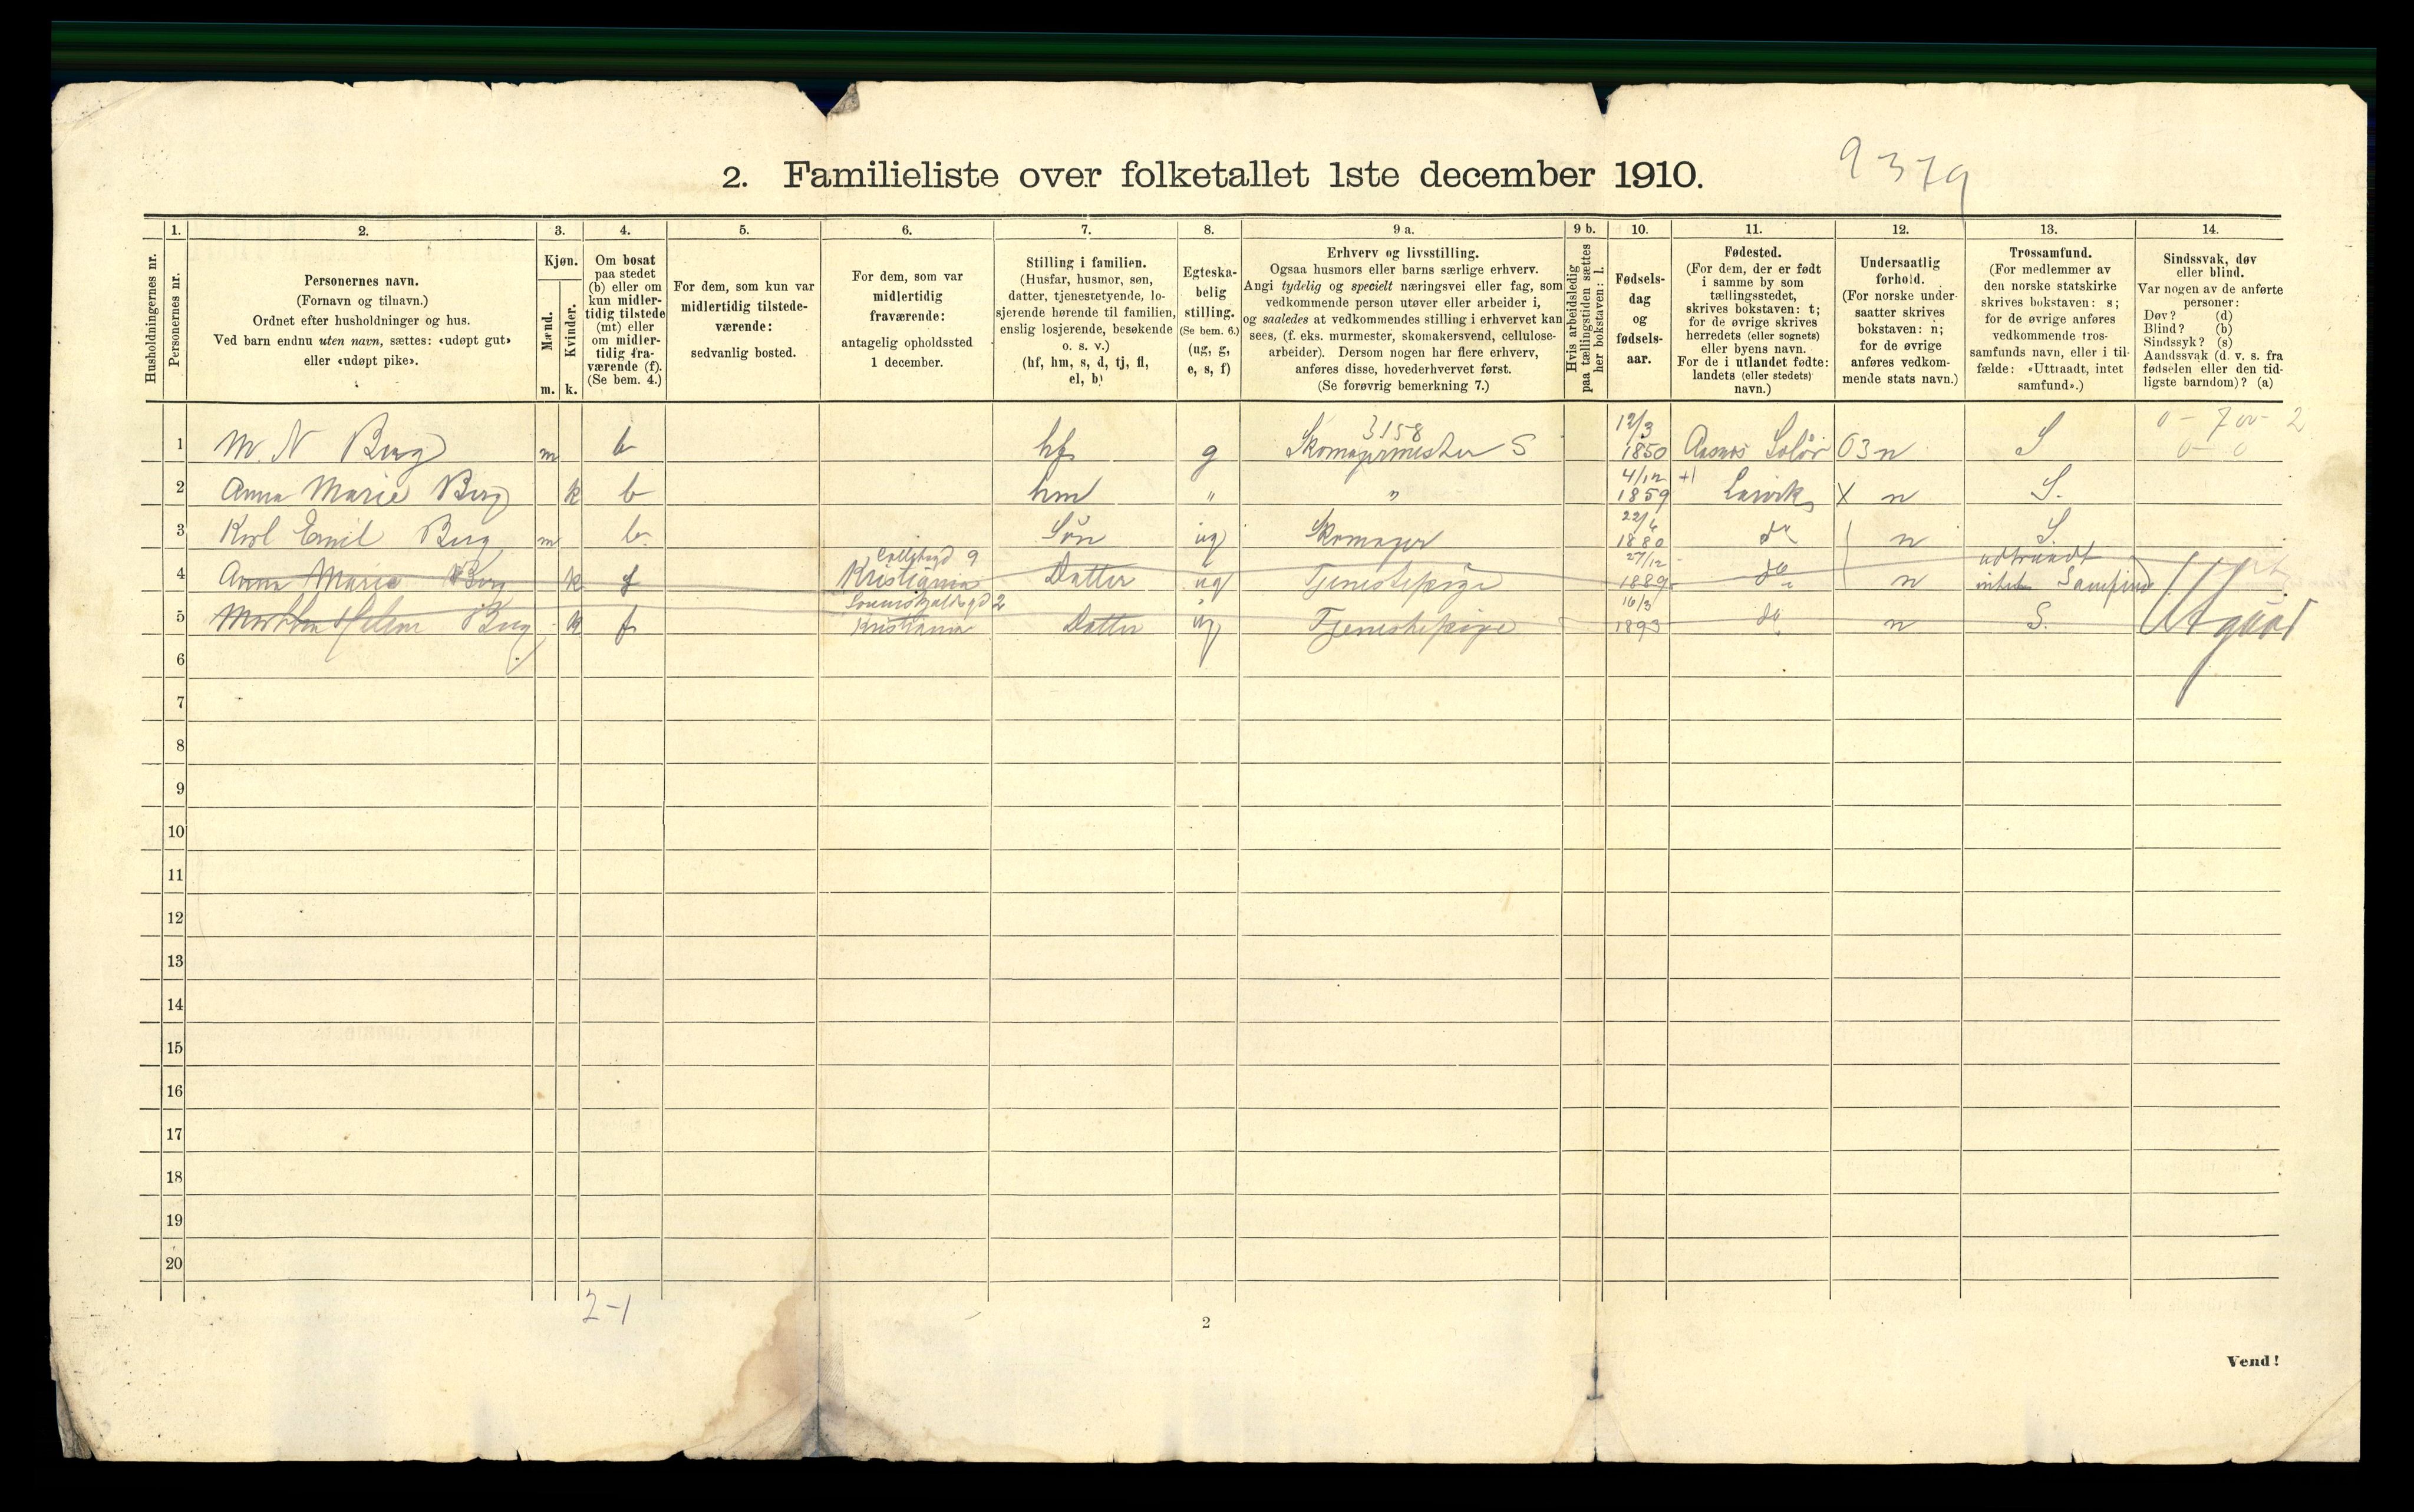 9379
2. Familieliste over folketallet 1ste december 1910.
Husholdningernes nr.
1. Personernes nr.
2. Personernes navn.
(Fornavn og tilnavn.)
Ordnet efter husholdninger og hus.
Ved barn endnu uten navn, sættes: «udøpt gut»
eller «udøpt pike».
3. Kjøn.
Mænd. m.
Kvinder. k.
4. Om bosat
paa stedet
(b) eller om
kun midler-
tidig tilstede
(mt) eller
om midler-
tidig fra-
værende (f).
(Se bem. 4.)
5. For dem, som kun var
midlertidig tilstede-
værende:
sedvanlig bosted.
6. For dem, som var
midlertidig
fraværende:
antagelig opholdssted
1 december.
7. Stilling i familien.
(Husfar, husmor, søn,
datter, tjenestetyende, lo-
sjerende hørende til familien,
enslig losjerende, besøkende
o. s. v.)
(hf, hm, s, d, tj, fl,
el, b)
8. Egteska-
belig
stilling.
(Se bem. 6.)
(ug, g,
e, s, f)
9 a. Erhverv og livsstilling.
Ogsaa husmors eller barns særlige erhverv.
Angi tydelig og specielt næringsvei eller fag, som
vedkommende person utøver eller arbeider i,
og saaledes at vedkommendes stilling i erhvervet kan
sees, (f. eks. murmester, skomakersvend, cellulose-
arbeider). Dersom nogen har flere erhverv,
anføres disse, hovederhvervet først.
(Se forøvrig bemerkning 7.)
9 b. Hvis arbeidsledig
paa tællingstiden sættes
her bokstaven: l.
10. Fødsels-
dag
og
fødsels-
aar.
11. Fødested.
(For dem, der er født
i samme by som
tællingsstedet,
skrives bokstaven: t;
for de øvrige skrives
herredets (eller sognets)
eller byens navn.
For de i utlandet fødte:
landets (eller stedets)
navn.)
12. Undersaatlig
forhold.
(For norske under-
saatter skrives
bokstaven: n;
for de øvrige
anføres vedkom-
mende stats navn.)
13. Trossamfund.
(For medlemmer av
den norske statskirke
skrives bokstaven: s;
for de øvrige anføres
vedkommende tros-
samfunds navn, eller i til-
fælde: «Uttraadt, intet
samfund».)
14. Sindssvak, døv
eller blind.
Var nogen av de anførte
personer:
Døv? (d)
Blind? (b)
Sindssyk? (s)
Aandssvak (d. v. s. fra
fødselen eller den tid-
ligste barndom)? (a)
3158 12/3 0 - 700 - 2
1 M. N Berg m b hf g Skomagermester S 1850 Aasnes Solør 03 n S 0 - 0
4/12
2 Anna Marie Berg k b hm " " 1859 Larvik X n S.
22/6
3 Karl Emil Berg m b. Søn ug Skomager 1880 do n S.
9 27/12 udtraadt
4 Anna Marie Berg k f Kristiania Datter ug Tjenestepige 1889 do n intet Samfund
2 16/3
5 Helene Berg k f Kristiania Datter ug Tjenestepige 1893 do n S. Utgaar
6
7
8
9
10
11
12
13
14
15
16
17
18
19
20
2-1
2
Vend!